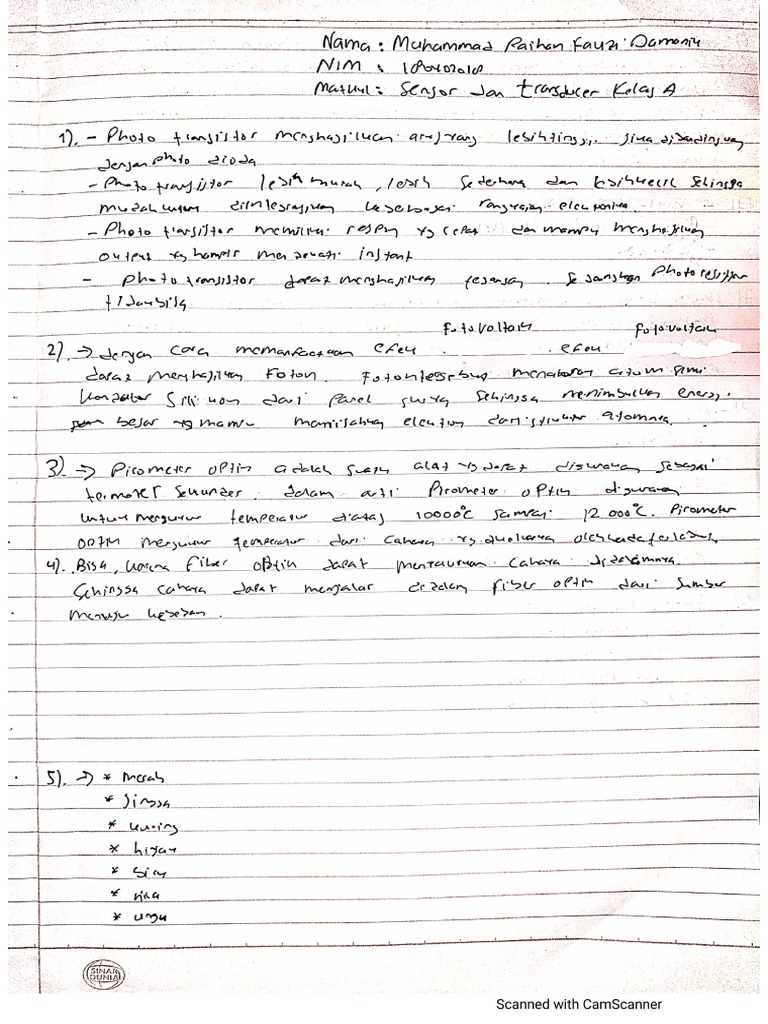 Nama : Muhammad Raihan Fauzi
NIM :
Matkul : Sensor dan transducer Kelas A
1). - Photo transistor menghasilkan arus yang lebih tinggi jika dibandingkan
dengan photo dioda
- Photo transistor lebih murah, lebih sederhana dan lebih kecil sehingga
mudah untuk diintegrasikan ke berbagai rangkaian elektronika.
- Photo transistor memiliki respon yg cepat dan mampu menghasilkan
output yg hampir mendekati instant
- Photo transistor dapat menghasilkan tegangan. Sedangkan Photo resistor
tidak bisa
fotovoltaik fotovoltaik
2). → dengan cara memanfaatkan efek efek
dapat menghasilkan Foton. Foton tersebut menabrak atom semi
konduktor Silikon dari Panel surya sehingga menimbulkan energi
besar yg mampu memisahkan elektron dari struktur atomnya.
3) → Pirometer optik adalah suatu alat yg dapat digunakan sebagai
termometer Sekunder. dalam arti Pirometer optik digunakan
untuk mengukur temperatur diatas 10000°C sampai 12000°C. Pirometer
optik mengukur temperatur dari cahaya yg oleh
4). Bisa, karna Fiber optik dapat cahaya didalamnya.
Sehingga cahaya dapat menjalar di dalam fiber optik dari sumber
menuju
5). → * Merah
* Jingga
* kuning
* hijau
* biru
* nila
* ungu
SINAR
DUNIA
Scanned with CamScanner